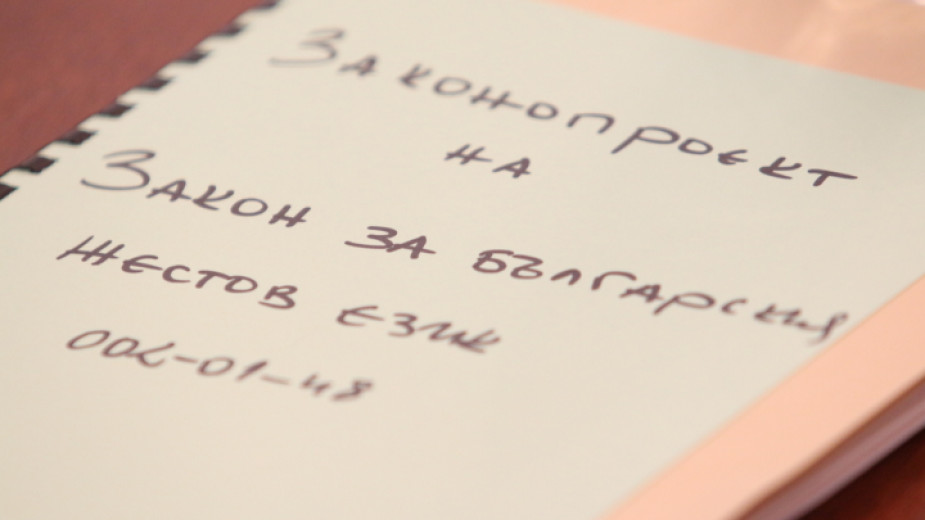 Законопроект
на
Закон за българския
жестов език
002-01-48